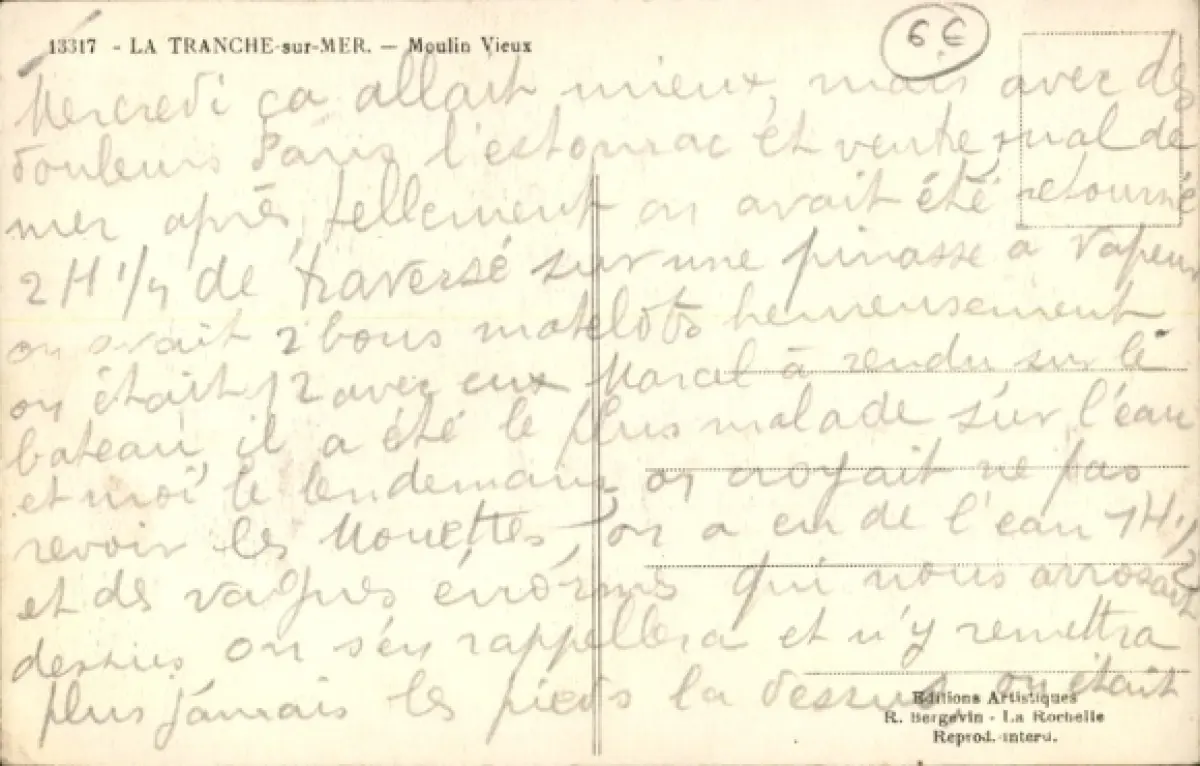 13317 - LA TRANCHE-sur-MER. — Moulin Vieux
6 €
Mercredi ça allait mieux, mais avec des
douleurs dans l'estomac et ventre mal de
mer après, tellement on avait été retourné
2 H 1/4 de traversé sur une pinasse à vapeur
on avait 2 bons matelots heureusement
on était 12 avec eux Marcel à rendu sur le
bateau il a été le plus malade sur l'eau
et moi le lendemain on croyait ne pas
revoir les Mouettes, on a eu de l'eau 1H 1/2
et des vagues énormes qui nous arrosait
dessus on s'en rappellera et n'y remettra
plus jamais les pieds la dessus on était
Editions Artistiques
R. Bergevin - La Rochelle
Reprod. interd.